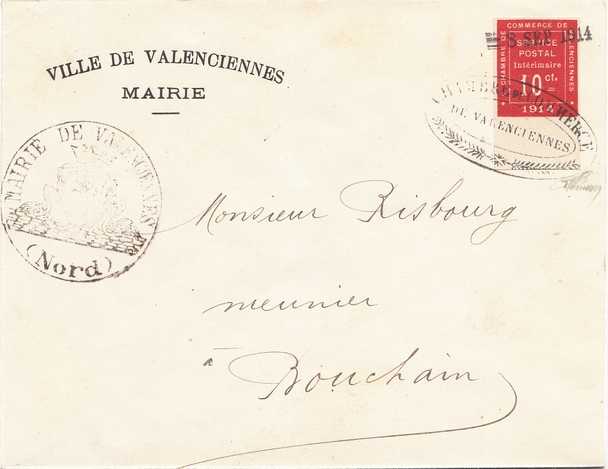 VILLE DE VALENCIENNES
MAIRIE
8 SEP 1914
CHAMBRE DE COMMERCE DE VALENCIENNES
SERVICE
POSTAL
Intérimaire
10 ct.
1914
CHAMBRE DE COMMERCE
DE VALENCIENNES
MAIRIE DE VALENCIENNES
(Nord)
Monsieur Risbourg
meunier
à
Bouchain